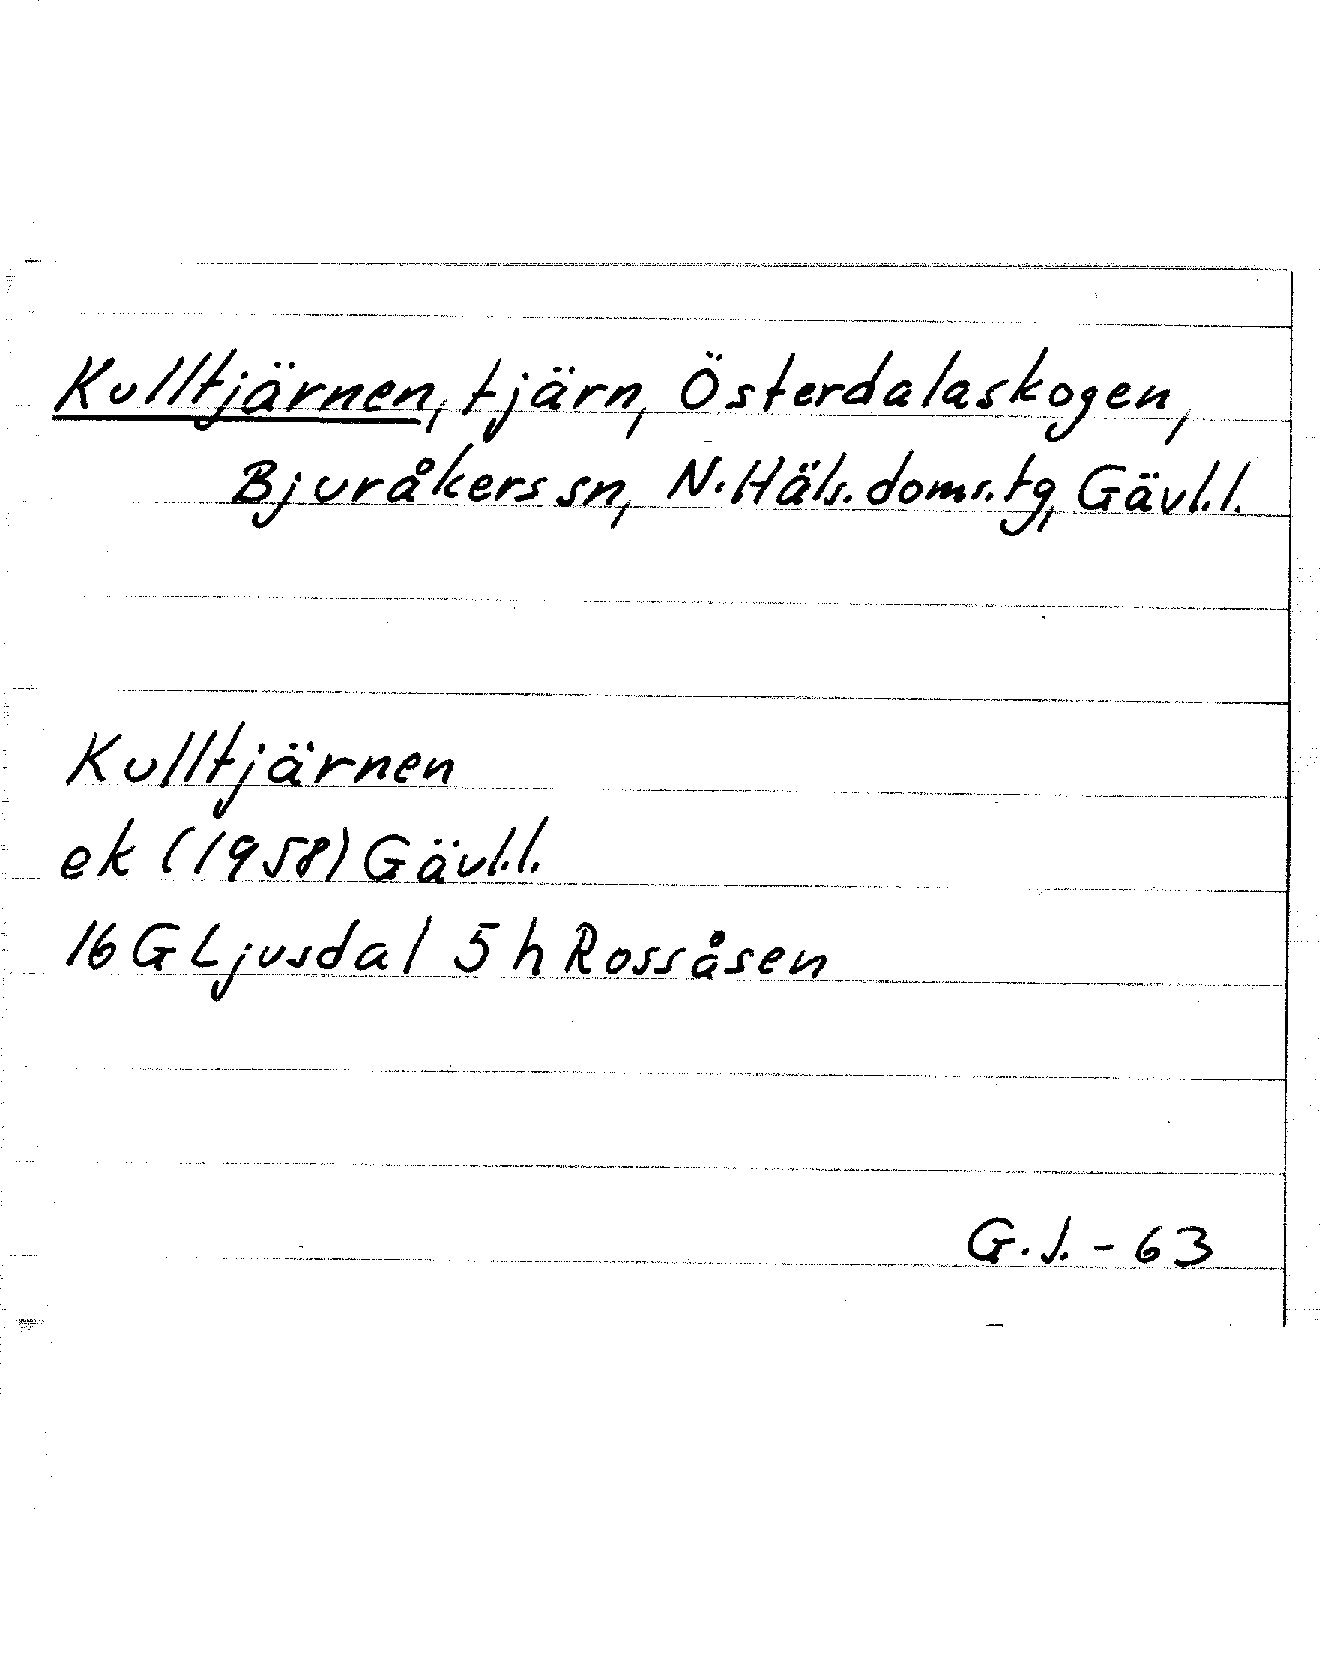 Kulltjärnen, tjärn, Österdalaskogen,
Bjuråkers sn, N. Häls. doms. tg, Gävl. l.
Kulltjärnen
ek (1958) Gävl. l.
16 G Ljusdal 5 h Rossåsen
G. J. - 63